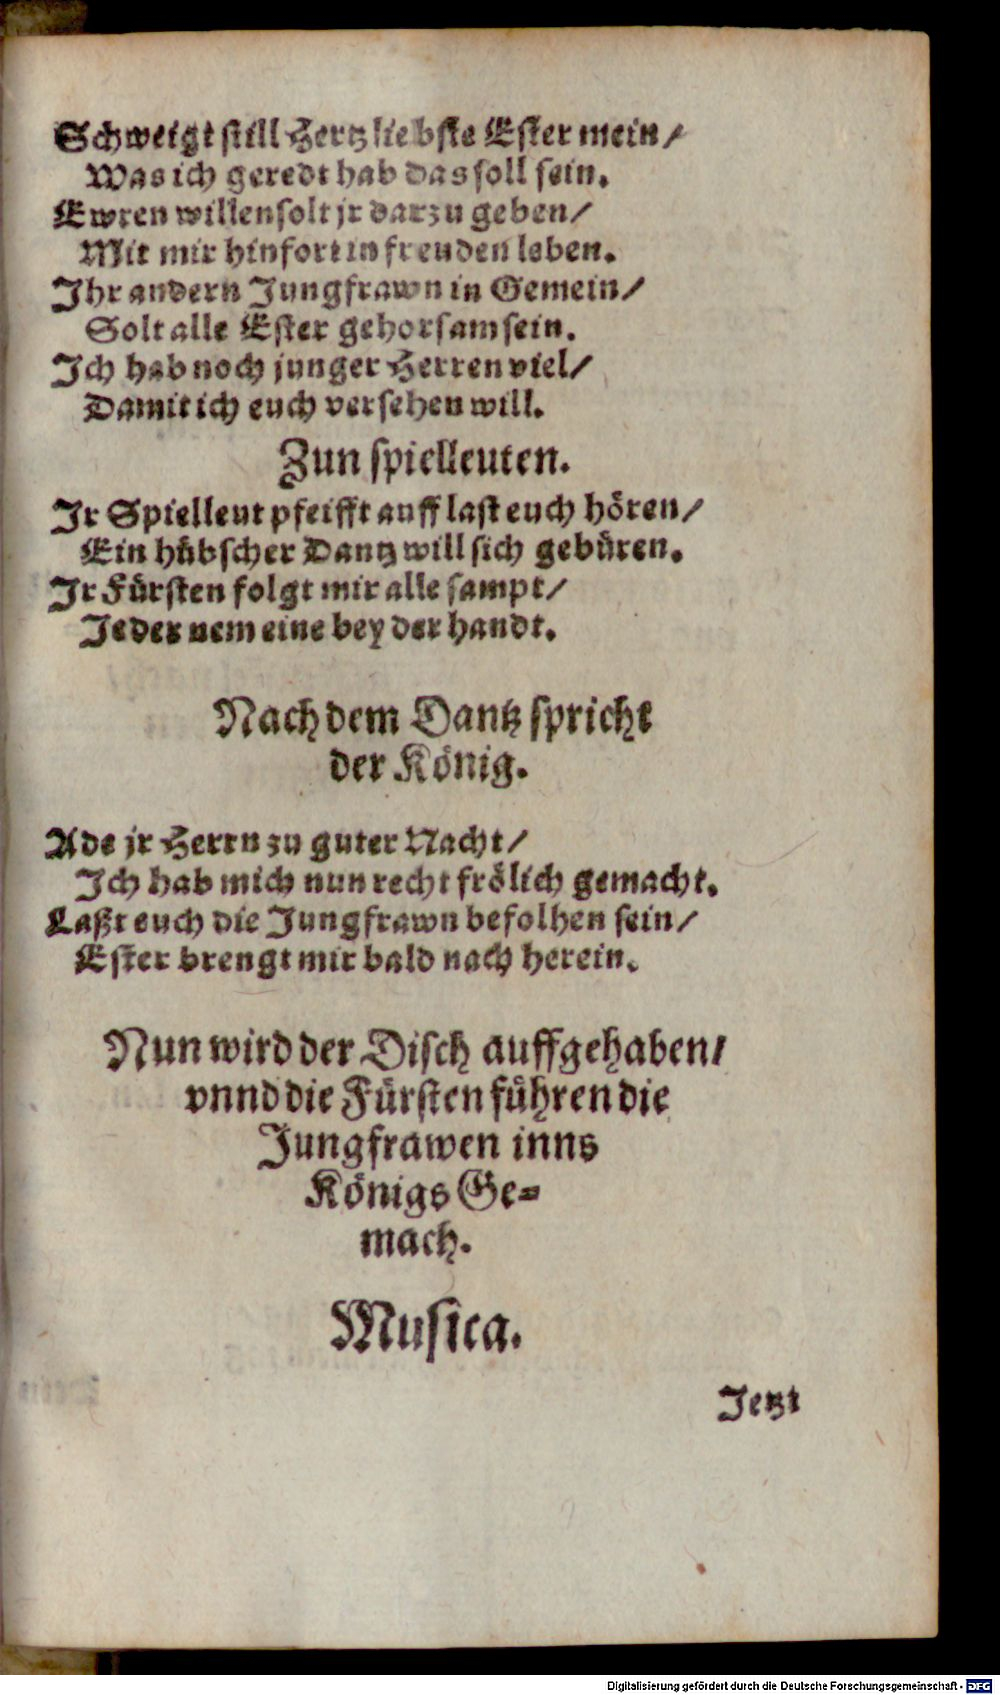 Schweigt still Hertzliebste Ester mein/
Was ich geredt hab das soll sein.
Ewren willen solt jr darzu geben/
Mit mir hinfort in freuden leben.
Ihr andern Jungfrawn in Gemein/
Solt alle Ester gehorsam sein.
Ich hab noch junger Herren viel/
Damit ich euch versehen will.
Zun spielleuten.
Ir Spielleut pfeifft auff last euch hören/
Ein hübscher Dantz will sich gebüren.
Ir Fürsten folgt mir alle sampt/
Jeder nem eine bey der handt.
Nach dem Dantz spricht
der König.
Ade jr Herrn zu guter Nacht/
Ich hab mich nun recht frölich gemacht.
Laßt euch die Jungfrawn befolhen sein/
Ester brengt mir bald nach herein.
Nun wird der Disch auffgehaben/
vnnd die Fürsten führen die
Jungfrawen inns
Königs Ge-
mach.
Musica.
Jetzt
Digitalisierung gefördert durch die Deutsche Forschungsgemeinschaft - DFG